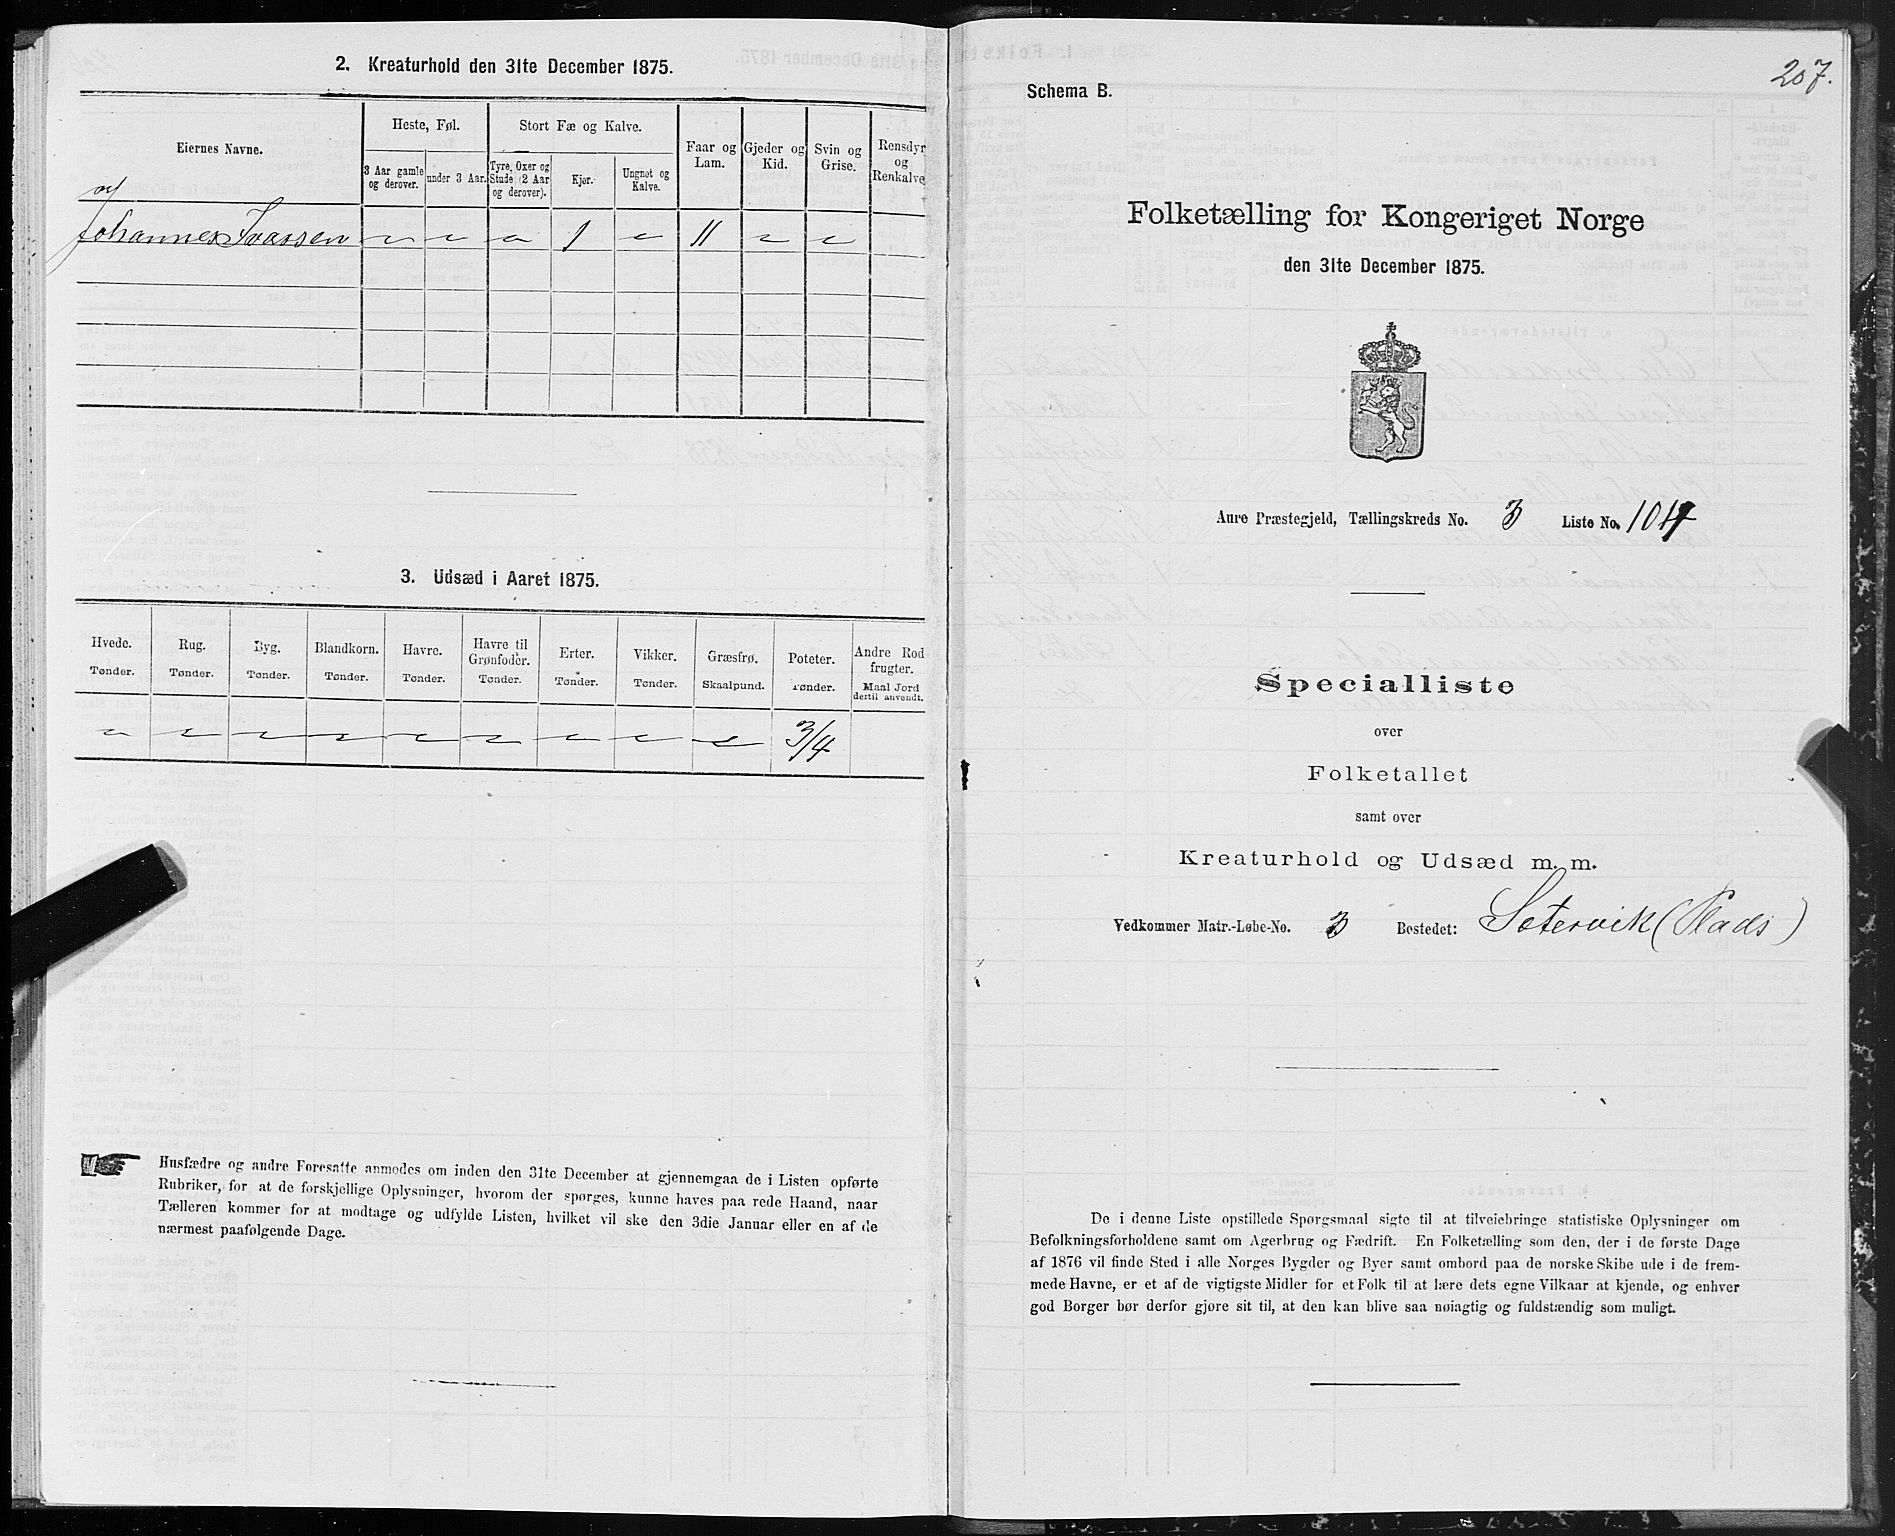 2. Kreaturhold den 31te December 1875.
Eiernes Navne.
Heste, Føl.
Stort Fæ og Kalve.
Faar og Lam.
Gjeder og Kid.
Svin og Grise.
Rensdyr og Renkalve
3 Aar gamle og derover.
under 3 Aar.
Tyre, Oxer og Stude (2 Aar og derover).
Kjør.
Ungnøt og Kalve.
Johannes Ivarsen 1 11
3. Udsæd i Aaret 1875.
Hvede. Tønder.
Rug. Tønder.
Byg. Tønder.
Blandkorn. Tønder.
Havre. Tønder.
Havre til Grønfoder. Tønder.
Erter. Tønder.
Vikker. Tønder.
Græsfrø. Skaalpund.
Poteter. Tønder.
Andre Rodfrugter. Maal Jord dertil anvendt.
3/4
Husfædre og andre Foresatte anmodes om inden den 31te December at gjennemgaa de i Listen opførte
Rubriker, for at de forskjellige Oplysninger, hvorom der spørges, kunne haves paa rede Haand, naar
Tælleren kommer for at modtage og udfylde Listen, hvilket vil ske den 3die Januar eller en af de
nærmest paafølgende Dage.
207.
Schema B.
Folketælling for Kongeriget Norge
den 31te December 1875.
Aure Præstegjeld, Tællingskreds No. 3 Liste No. 104
Specialliste
over
Folketallet
samt over
Kreaturhold og Udsæd m. m.
Vedkommer Matr.-Løbe-No. 3 Bostedet: Sætervik (Plads)
De i denne Liste opstillede Spørgsmaal sigte til at tilveiebringe statistiske Oplysninger om
Befolkningsforholdene samt om Agerbrug og Fædrift. En Folketælling som den, der i de første Dage
af 1876 vil finde Sted i alle Norges Bygder og Byer samt ombord paa de norske Skibe ude i de frem-
mede Havne, er et af de vigtigste Midler for et Folk til at lære dets egne Vilkaar at kjende, og enhver
god Borger bør derfor gjøre sit til, at den kan blive saa nøiagtig og fuldstændig som muligt.